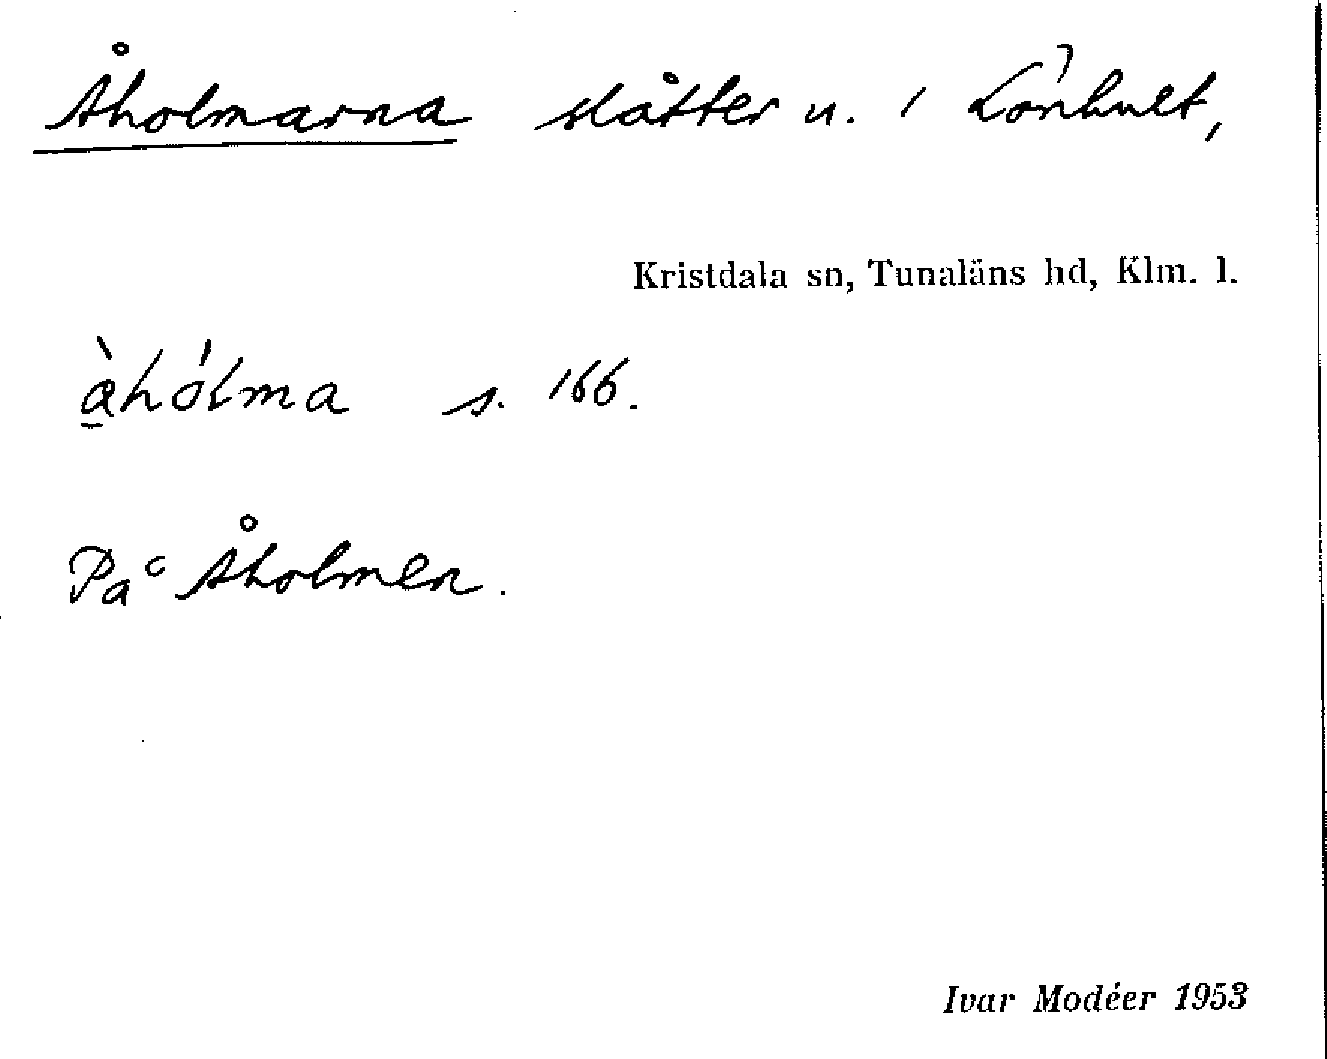 Åholmarna slåtter n. i Lönhult,
Kristdala sn, Tunaläns hd, Klm. l.
à̱hólma s. 166.
Pac Åholmen.
Ivar Modéer 1953